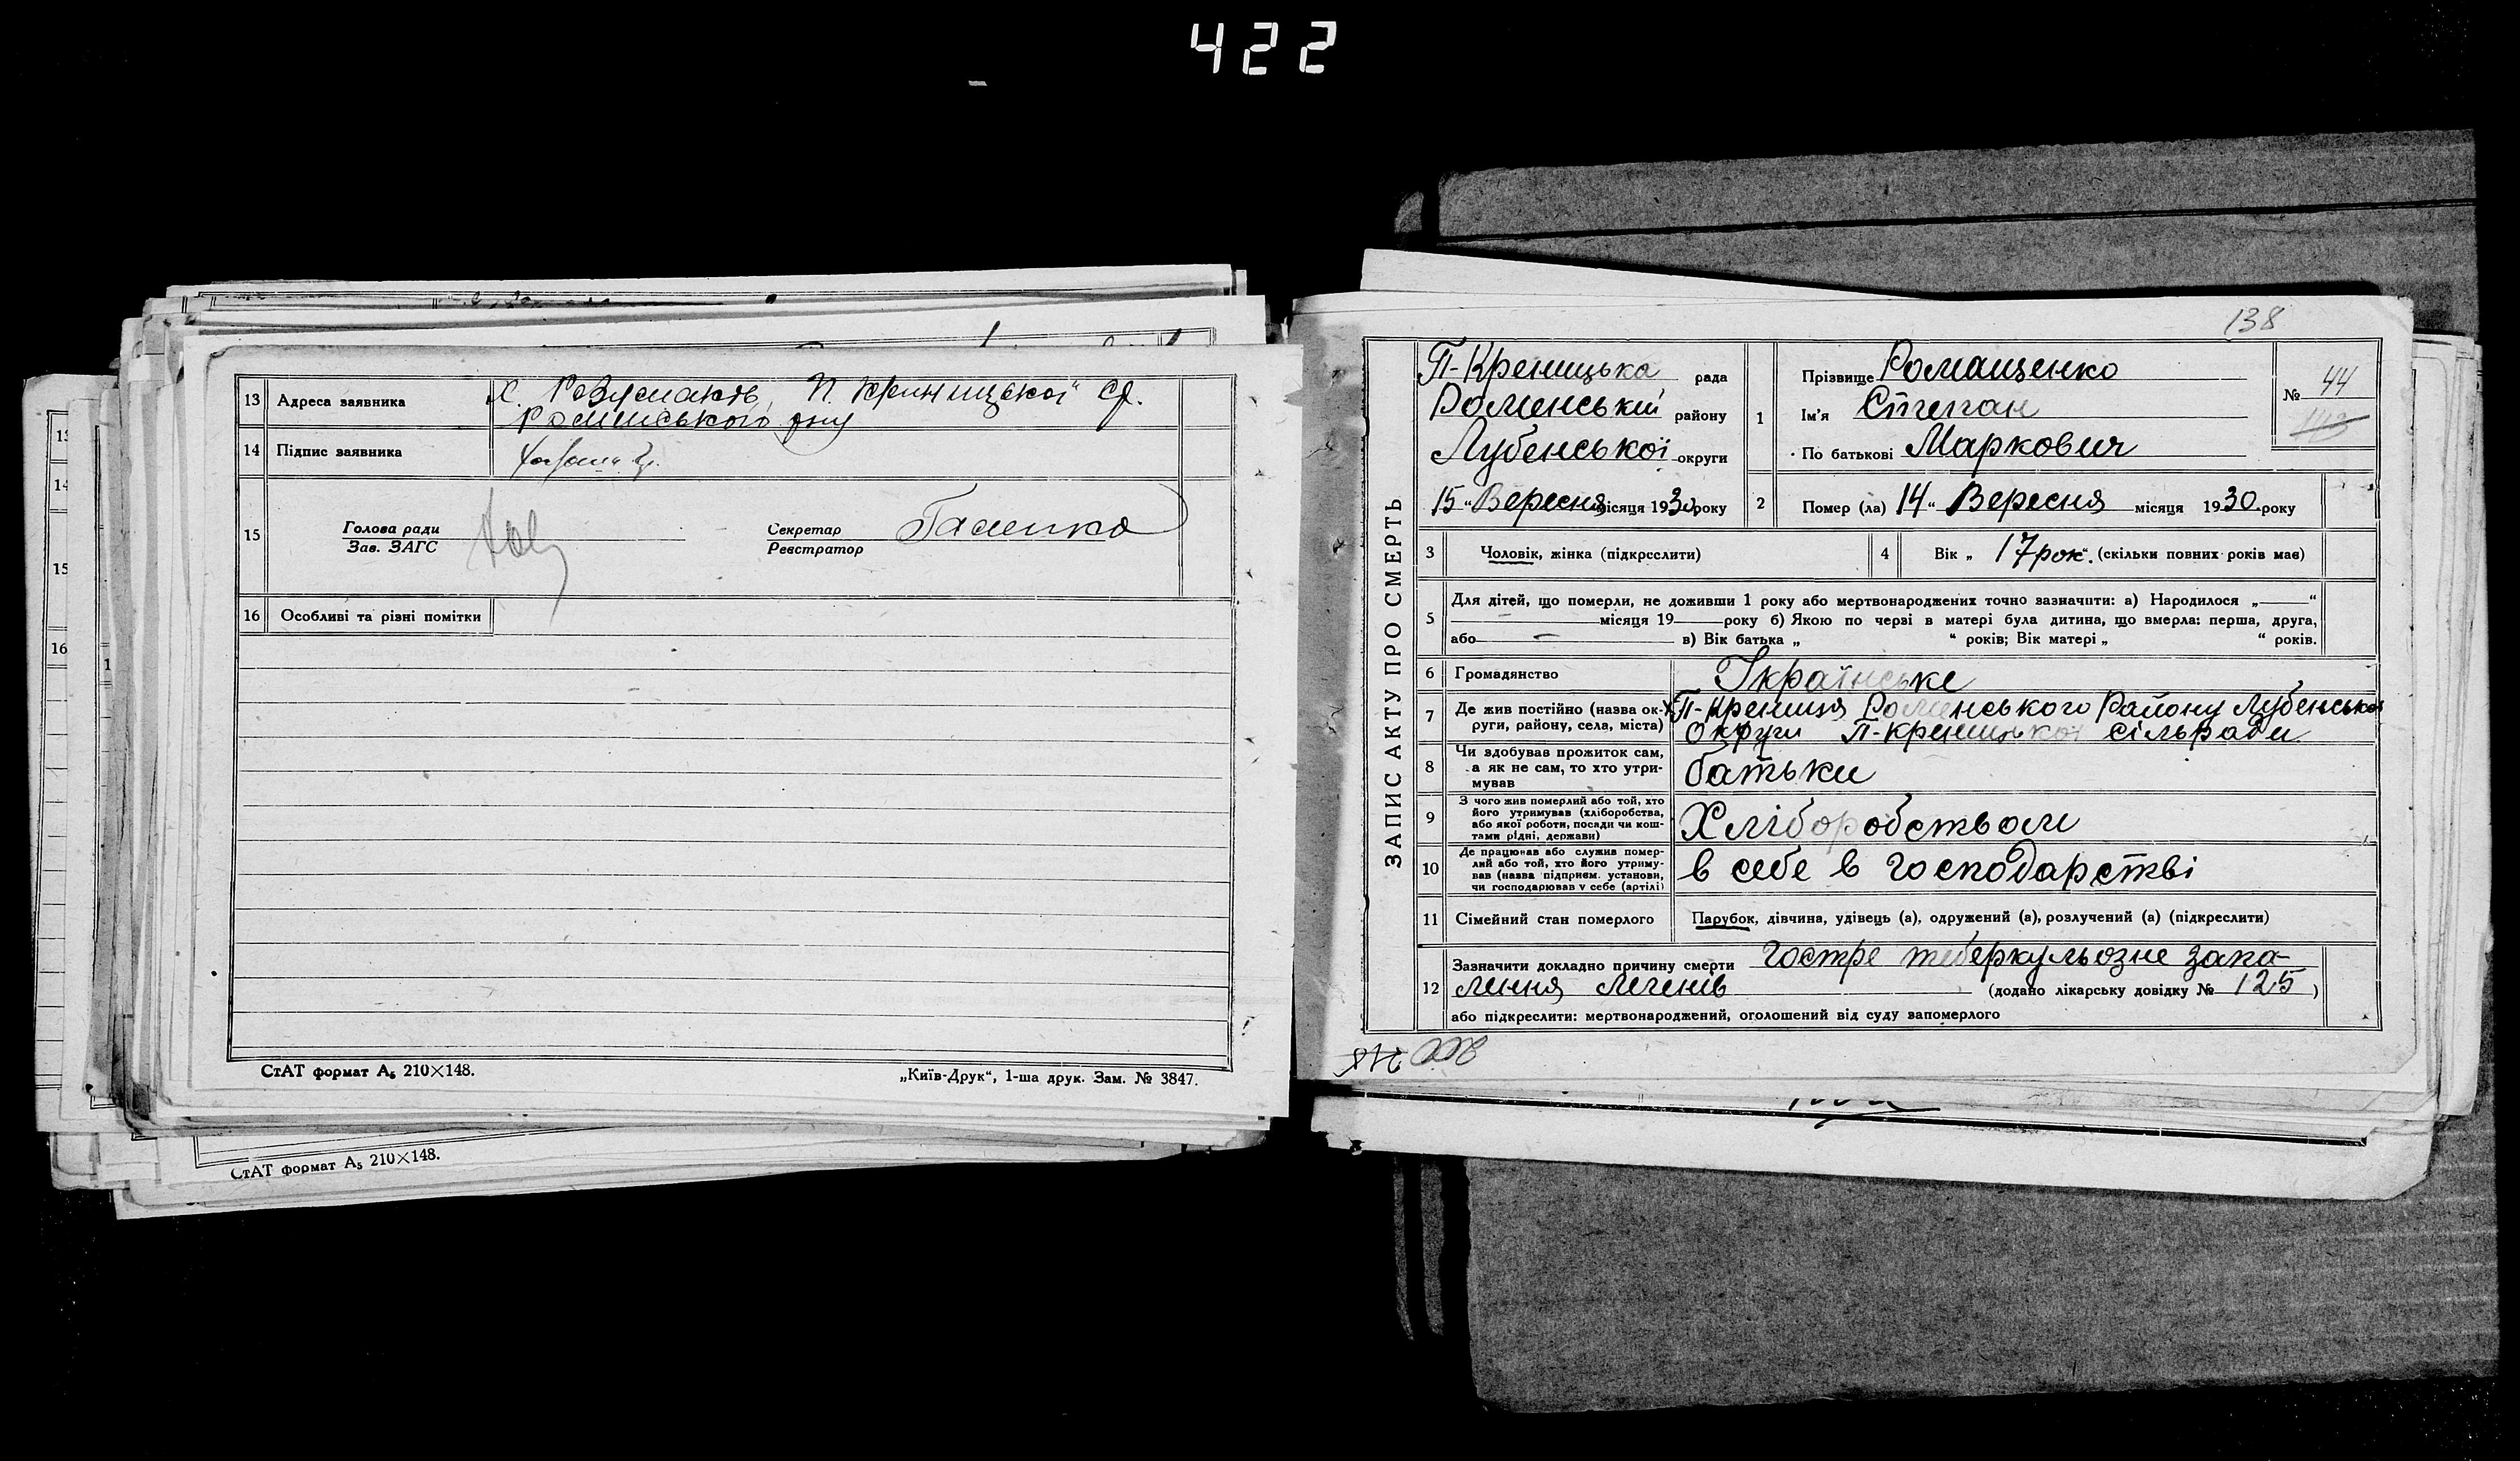 422
13 Адреса заявника Х. П. Криницької СР.
Роменського р-ну
14 Підпис заявника
15 Голова ради
Зав. ЗАГС
Секретар
Реєстратор
16 Особливі та різні помітки
СтАТ формат А₅ 210×148.
„Київ-Друк“, 1-ша друк. Зам. № 3847.
СтАТ формат А₅ 210×148.
138
ЗАПИС АКТУ ПРО СМЕРТЬ
П-Креницька рада
Роменський району
Лубенської округи
15 “ Вересня місяця 1930 року
1 Прізвище Ромащенко
Ім’я Степан
По батькові Маркович
№ 44
2 Помер (ла) 14 “ Вересня місяця 1930 року
3 Чоловік, жінка (підкреслити)
4 Вік „ 17 рок “. (скільки повних років має)
5 Для дітей, що померли, не доживши 1 року або мертвонароджених точно зазначити: а) Народилося „ “
місяця 19 року б) Якою по черзі в матері була дитина, що вмерла: перша, друга,
або в) Вік батька „ “ років; Вік матері „ “ років.
6 Громадянство Українське
7 Де жив постійно (назва ок- Х П-Крениця Роменського Району Лубенської
руги, району, села, міста) Округи П-креницької сільради
8 Чи здобував прожиток сам,
а як не сам, то хто утри- батьки
мував
9 З чого жив померлий або той, хто
його утримував (хліборобства,
або якої роботи, посади чи кош- Хліборобством
тами рідні, держави)
10 Де працював або служив помер-
лий або той, хто його утриму- в себе в господарстві
вав (назва підприєм. установи,
чи господарював у себе (артілі)
11 Сімейний стан померлого Парубок, дівчина, удівець (а), одружений (а), розлучений (а) (підкреслити)
12 Зазначити докладно причину смерти гостре теберкульозне запа-
лення легенів (додано лікарську довідку № 125 )
або підкреслити: мертвонароджений, оголошений від суду запомерлого